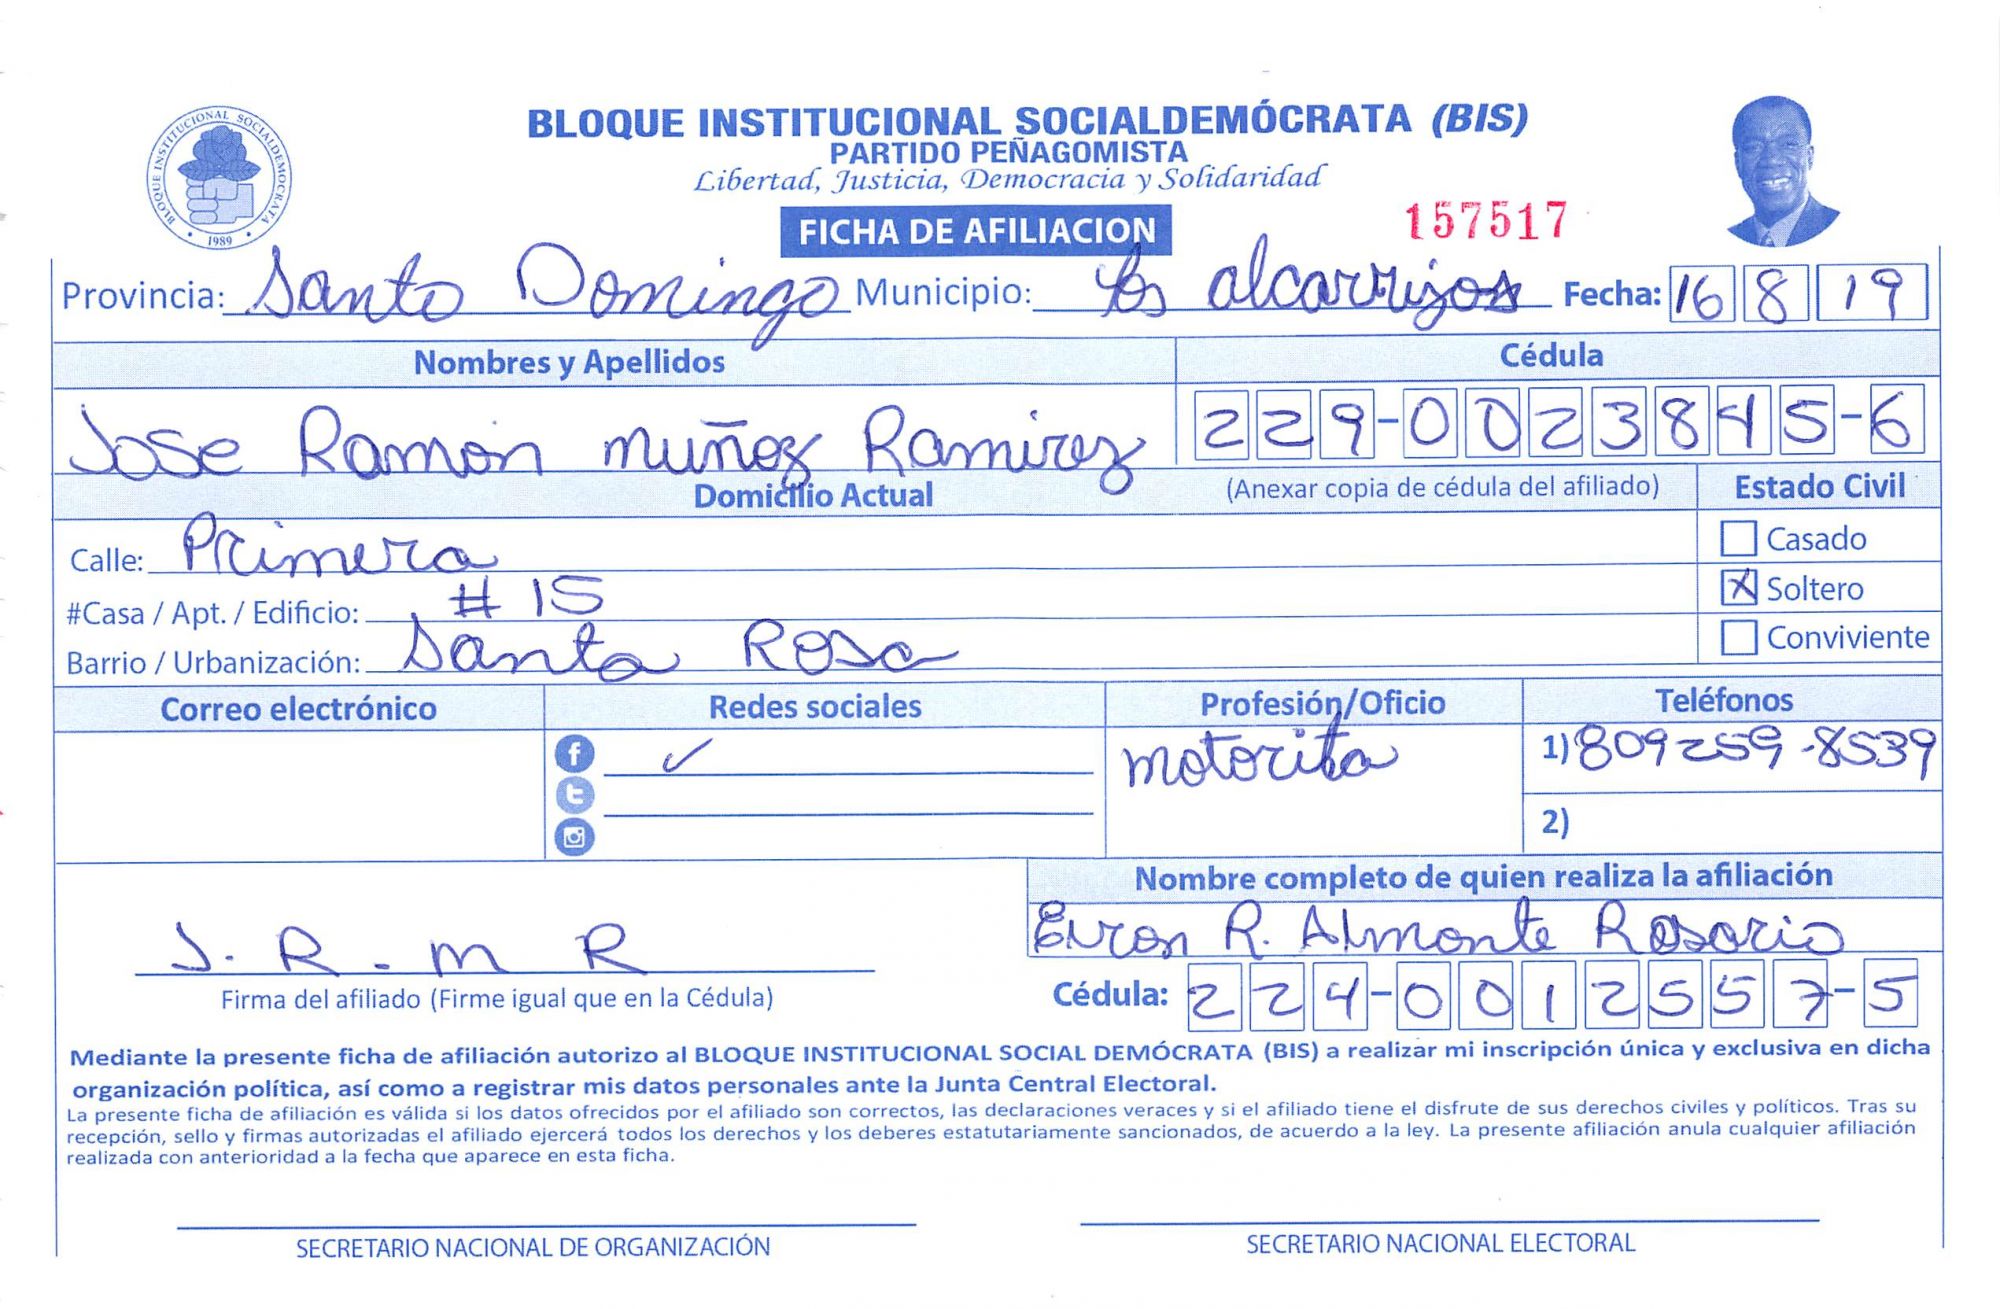 BLOQUE INSTITUCIONAL SOCIALDEMÓCRATA
1989
BLOQUE INSTITUCIONAL SOCIALDEMÓCRATA (BIS)
PARTIDO PEÑAGOMISTA
Libertad, Justicia, Democracia y Solidaridad
FICHA DE AFILIACION
157517
Provincia: Santo Domingo Municipio: Los alcarrizos Fecha: 16 8 19
Nombres y Apellidos Cédula
Jose Ramon muñoz Ramirez 229-0023845-6
Domicilio Actual (Anexar copia de cédula del afiliado) Estado Civil
Casado
Calle: Primera
X Soltero
#Casa / Apt. / Edificio: # 15
Conviviente
Barrio / Urbanización: Santa Rosa
Correo electrónico Redes sociales Profesión/Oficio Teléfonos
✓ motorita 1) 809259-8539
2)
Nombre completo de quien realiza la afiliación
R. Almonte Rosario
J. R. m R
Firma del afiliado (Firme igual que en la Cédula) Cédula: 224-0012557-5
Mediante la presente ficha de afiliación autorizo al BLOQUE INSTITUCIONAL SOCIAL DEMÓCRATA (BIS) a realizar mi inscripción única y exclusiva en dicha
organización política, así como a registrar mis datos personales ante la Junta Central Electoral.
La presente ficha de afiliación es válida si los datos ofrecidos por el afiliado son correctos, las declaraciones veraces y si el afiliado tiene el disfrute de sus derechos civiles y políticos. Tras su
recepción, sello y firmas autorizadas el afiliado ejercerá todos los derechos y los deberes estatutariamente sancionados, de acuerdo a la ley. La presente afiliación anula cualquier afiliación
realizada con anterioridad a la fecha que aparece en esta ficha.
SECRETARIO NACIONAL DE ORGANIZACIÓN SECRETARIO NACIONAL ELECTORAL